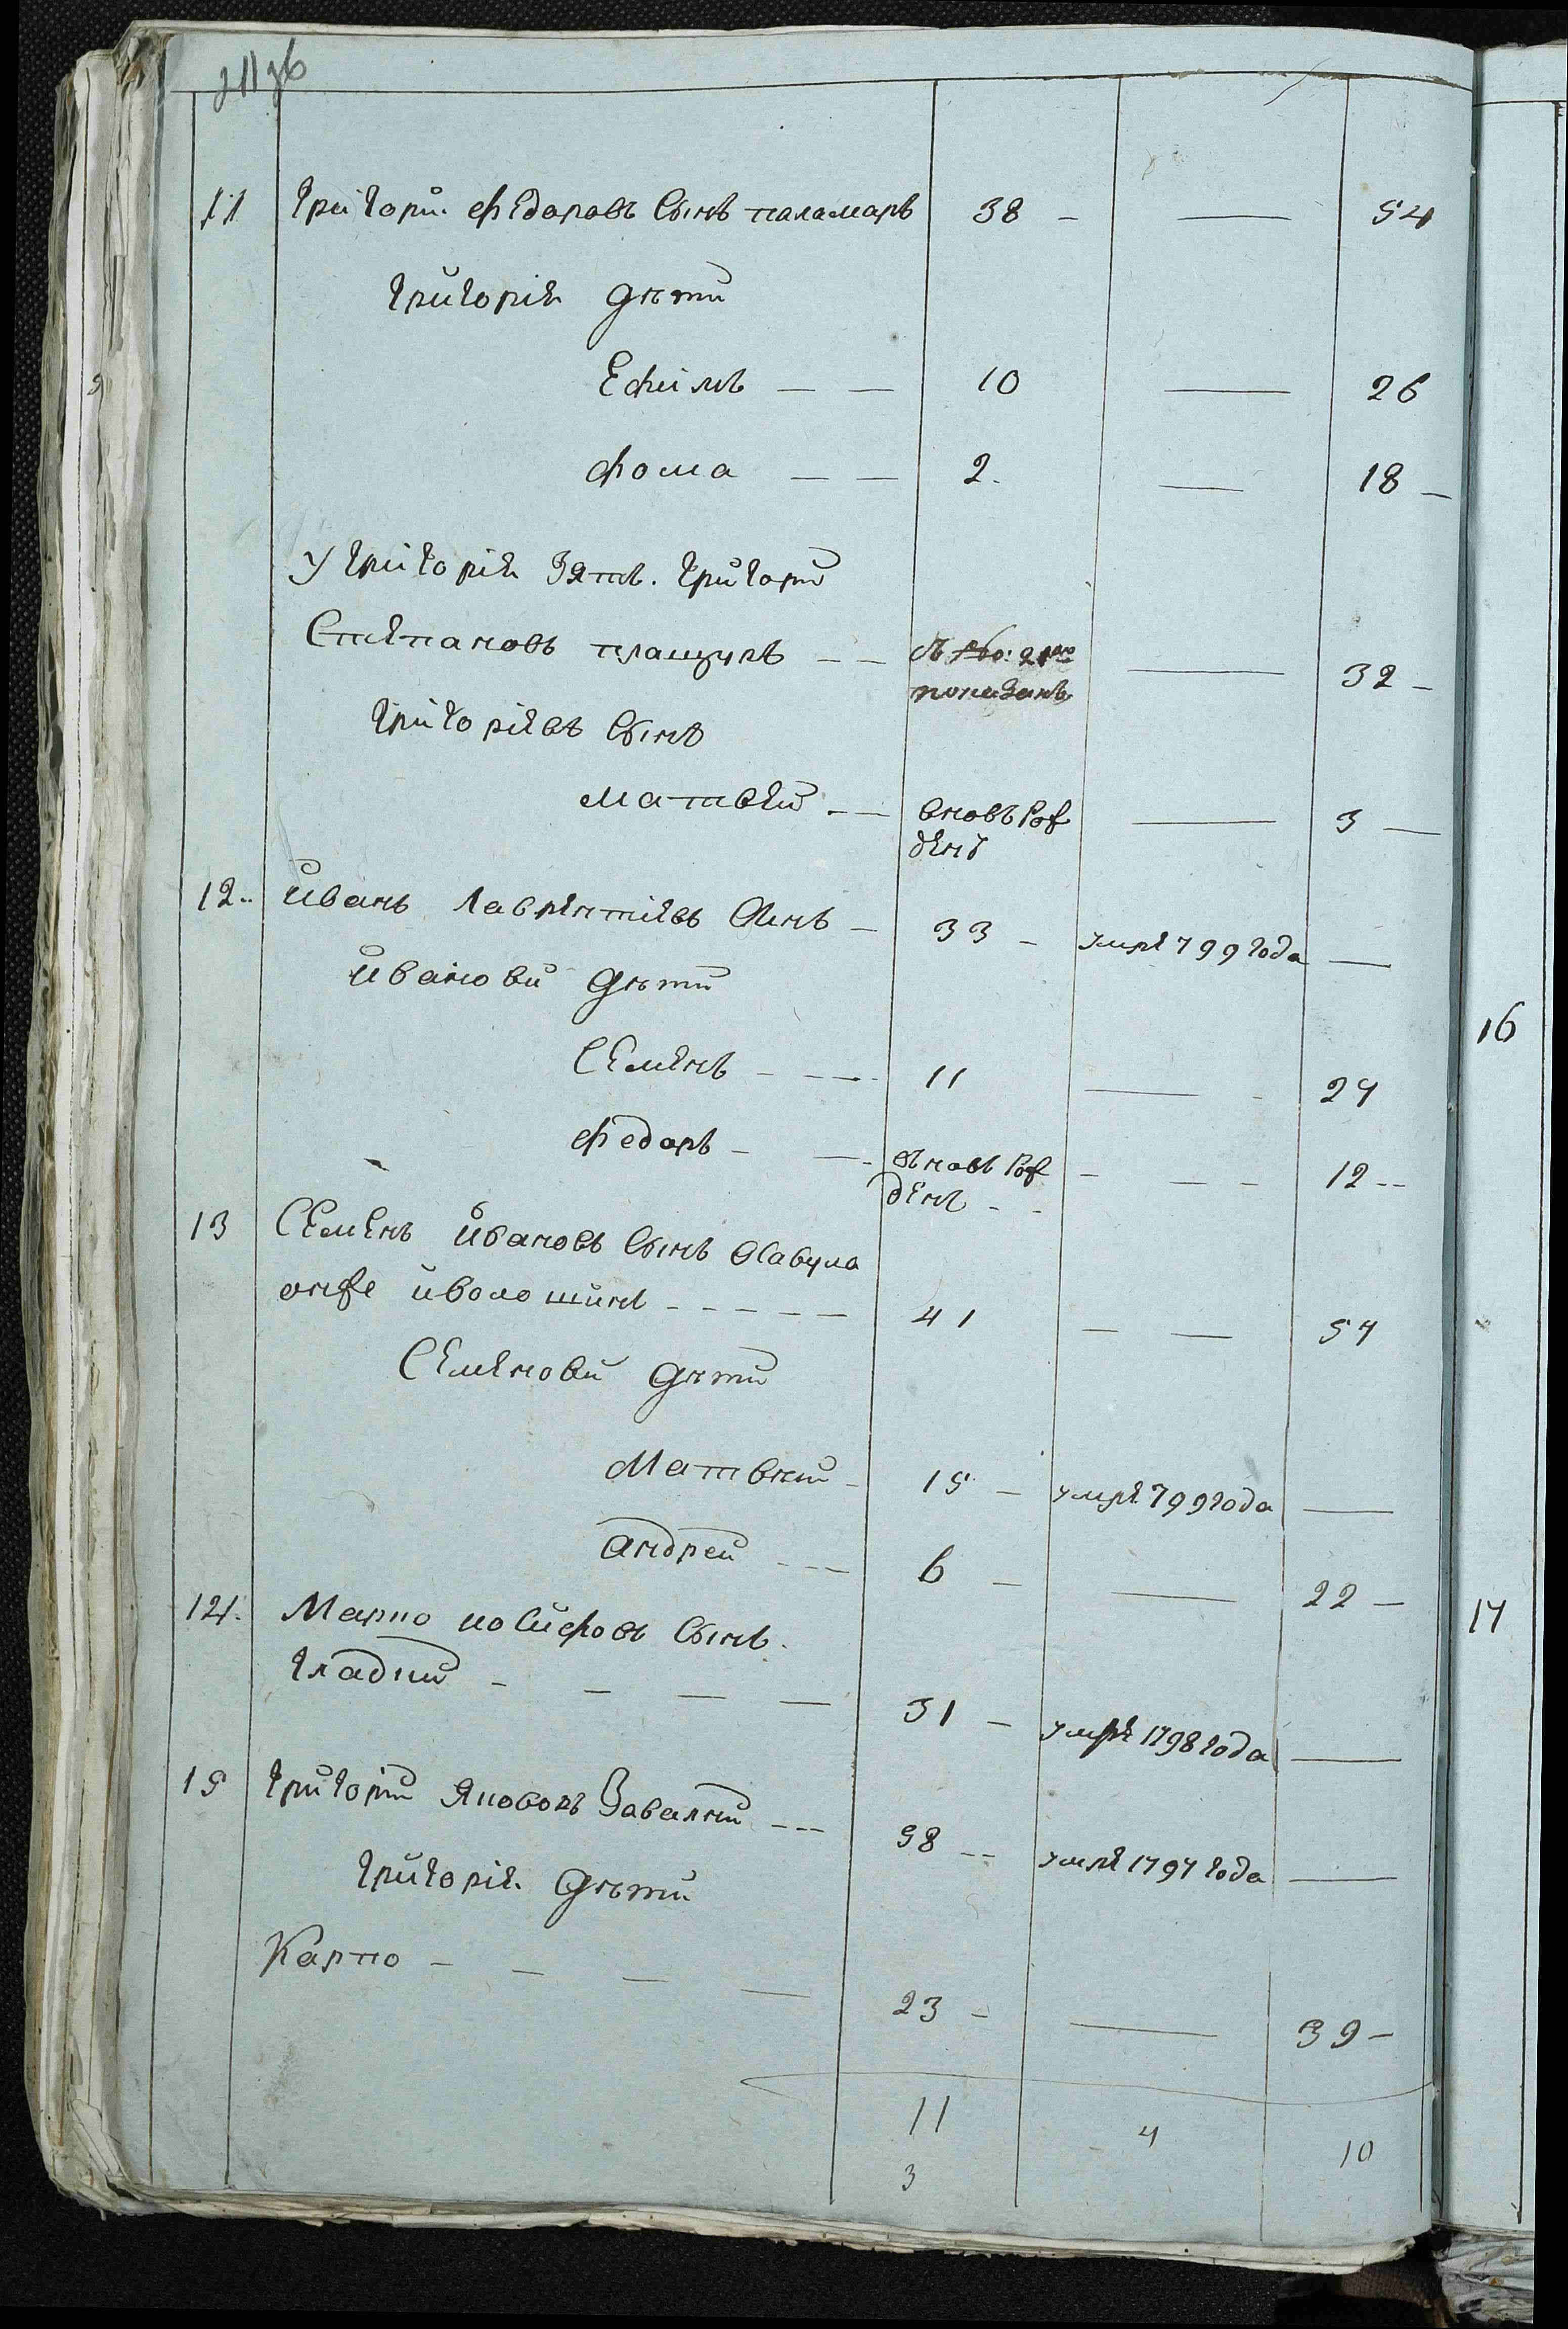 11 Григорий Федоровъ сынъ паламарь 38 — — 54
Григорія дѣти
Ефимъ — — 10 — 26
Фома — — 2. — 18 —
У Григорія зять. Григорий
Степановъ плащукъ — — показанъ — 32 —
Григоріевъ сынъ
Матвей — — вновь рож
денъ — 3 —
12.. Иванъ Лаврентіевъ сынъ — 33 — умре 799 года —
Иванови дѣти
Семенъ — — — 11 — 27
Федоръ — — вновь рож
денъ — — 12 --
13 Семенъ Ивановъ сынъ Асавула
онже иволошинъ — — — — — 41 — — 57
Семенови дѣти
Матвѣй — 15 — умре 799 года —
Андрей — — — 6 — — 22 —
14. Марко иосифовъ сынъ.
Гладкий — — — — 31 — умре 1798 года —
15 Григорій Якововъ Завалний — — — 58 -- умре 1797 года —
Григорія дѣти
Карпо — — — — 23 — — 39 —
11 4 10
3
16
17